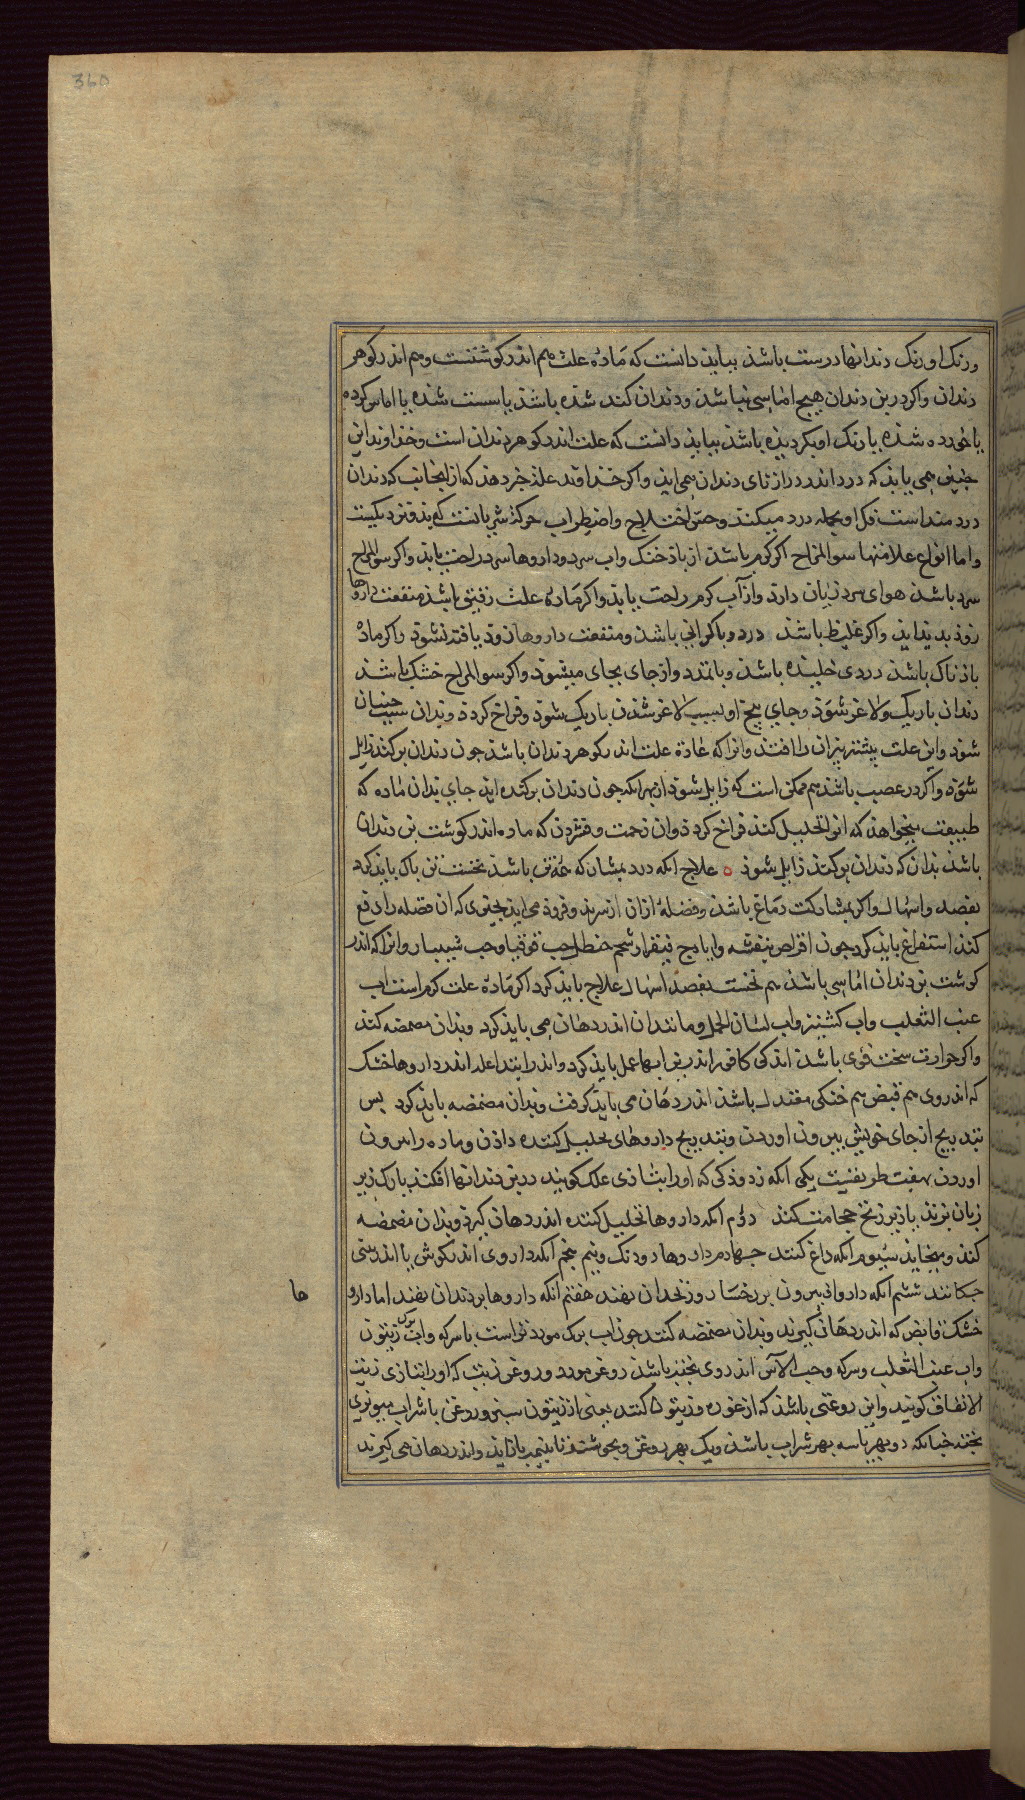 360
ورنک او رنک دندانها درست باشد ببایذ دانست که مادّه علت هم اندر کوشتست وهم اندر کوهر
دندان واکر در بن دندان هیچ اماسی نباشذ ودندان کند شده باشذ یا سست شده یا اماس کرده
یا خورده شذه یا رنک او بکردیذه باشذ ببایذ دانست که علت اندر کوهر دندان است وخداوند این
جنین همی یابذ که درد اندر درازنای دندان همی ایذ واکر خداوند علة خبر دهذ که از انجانب که دندان
دردمند است فک او بجمله درد میکند وحس اختلاج واضطراب
واما انواع علامتها سوالمزاج اکر کرم باشذ از باذ خنک واب سرد وداروها سرد راحت یابذ واکر سوالمزاج
سرد باشذ هوای سرد زیان دارذ واز آب کرم راحت یابذ واکر مادّه علت رقیق باشذ منفعت داروها
زوذ بدید ایذ واکر غلیظ باشذ درد با کرانی باشذ ومنفعت داروها زوذ یافته نشوذ واکر مادّه
باذناک باشذ دردی خلنده باشذ وبا تمدد واز جای بجای میشوذ واکر سوالمزاج خشک باشذ
دندان باریک ولاغر شوذ وجای بیخ او بسبب لاغر شذن باریک شوذ وفراخ کردذ وبدان سبب جنبان
شوذ واین علت بیشتر بیران را افتد وانرا که علة اندر کوهر دندان باشذ جون دندان برکنند زایل
شوذ واکر در عصب باشذ هم ممکن است که زایل شوذ از بهر انکه جون دندان برکنده ایذ جای بدان ماده که
طبیعت میخواهذ که انرا تحلیل کند فراخ کردذ وان زحمت وفشردن که ماده اندر کوشت بن دندان
باشذ بدان که دندان برکنند زایل شوذ علاج انکه درد بمشارکه همه تن باشذ نخست تن باک بایذ کرد
بفصد واسهال واکر بمشارکت دماغ باشذ وفضلهٔ ازان از سر بذو فروذ می ایذ بجیزی که ان فضله را دفع
کند استفراغ بایذ کرد جون اقراص بنفشه وایارج فیقرا وشحم حنظل وحب قوقیا وحب شبیار وانرا که اندر
کوشت بن دندان اماسی باشذ هم نخست بفصد اسهال علاج بایذ کرد اکر مادّه علت کرم است اب
عنب الثعلب واب کشنیز واب لسان الحمل وماننذ ان اندر دهان می بایذ کرد وبدان مضمضه کنند
واکر حرارت سخت قوی باشذ اندکی کافور اندرین ابها عمل بایذ کرد واندر ابتدا علة اندر داروها خشک
که اندر وی هم قبض هم خنکی معتدل باشذ اندر دهان می بایذ کرفت وبدان مضمضه بایذ کرد بس
بتدریج از جای خویش بیرون اوردن وبتدریج داروهای تحلیل کننده داذن وماده را بیرون
اوردن بهفت طریقست یکی انکه زدوذکی که او را بتازی علک کویند در بن دندانها افکند یا رک زیر
زبان بزند یا زیر زنخ حجامت کند دوّم انکه داروها تحلیل کننده اندر دهان کیرذ وبدان مضمضه
کند وبخایذ سیوم انکه داغ کنند جهارم داروها دوذ کنند بنجم انکه داروی اندر کوش یا اندر بینی
جکانند ششم انکه داروا بیرون بر رخسار وزنخدان نهند هفتم انکه داروها بر دندان نهند اما دارو
ها
خشک قابض که اندر دهان کیرند وبدان مضمضه کنند جون اب برک مورد تراست با سرکه واب برک زیتون
واب عنب الثعلب وسرکه وحب الآس اندر وی بخته باشذ روغن مورد وروغن زیت که او را بتازی زیت
الانفاق کویند واین روغنی باشذ که از غوره زیتون کنند یعنی از زیتون سبز وروغن با شراب
بخته جنانکه دو بهر یا سه بهر شراب باشذ ویک بهر روغن وبجوشند تا بنیمه بازایذ واندر دهان می کیرند